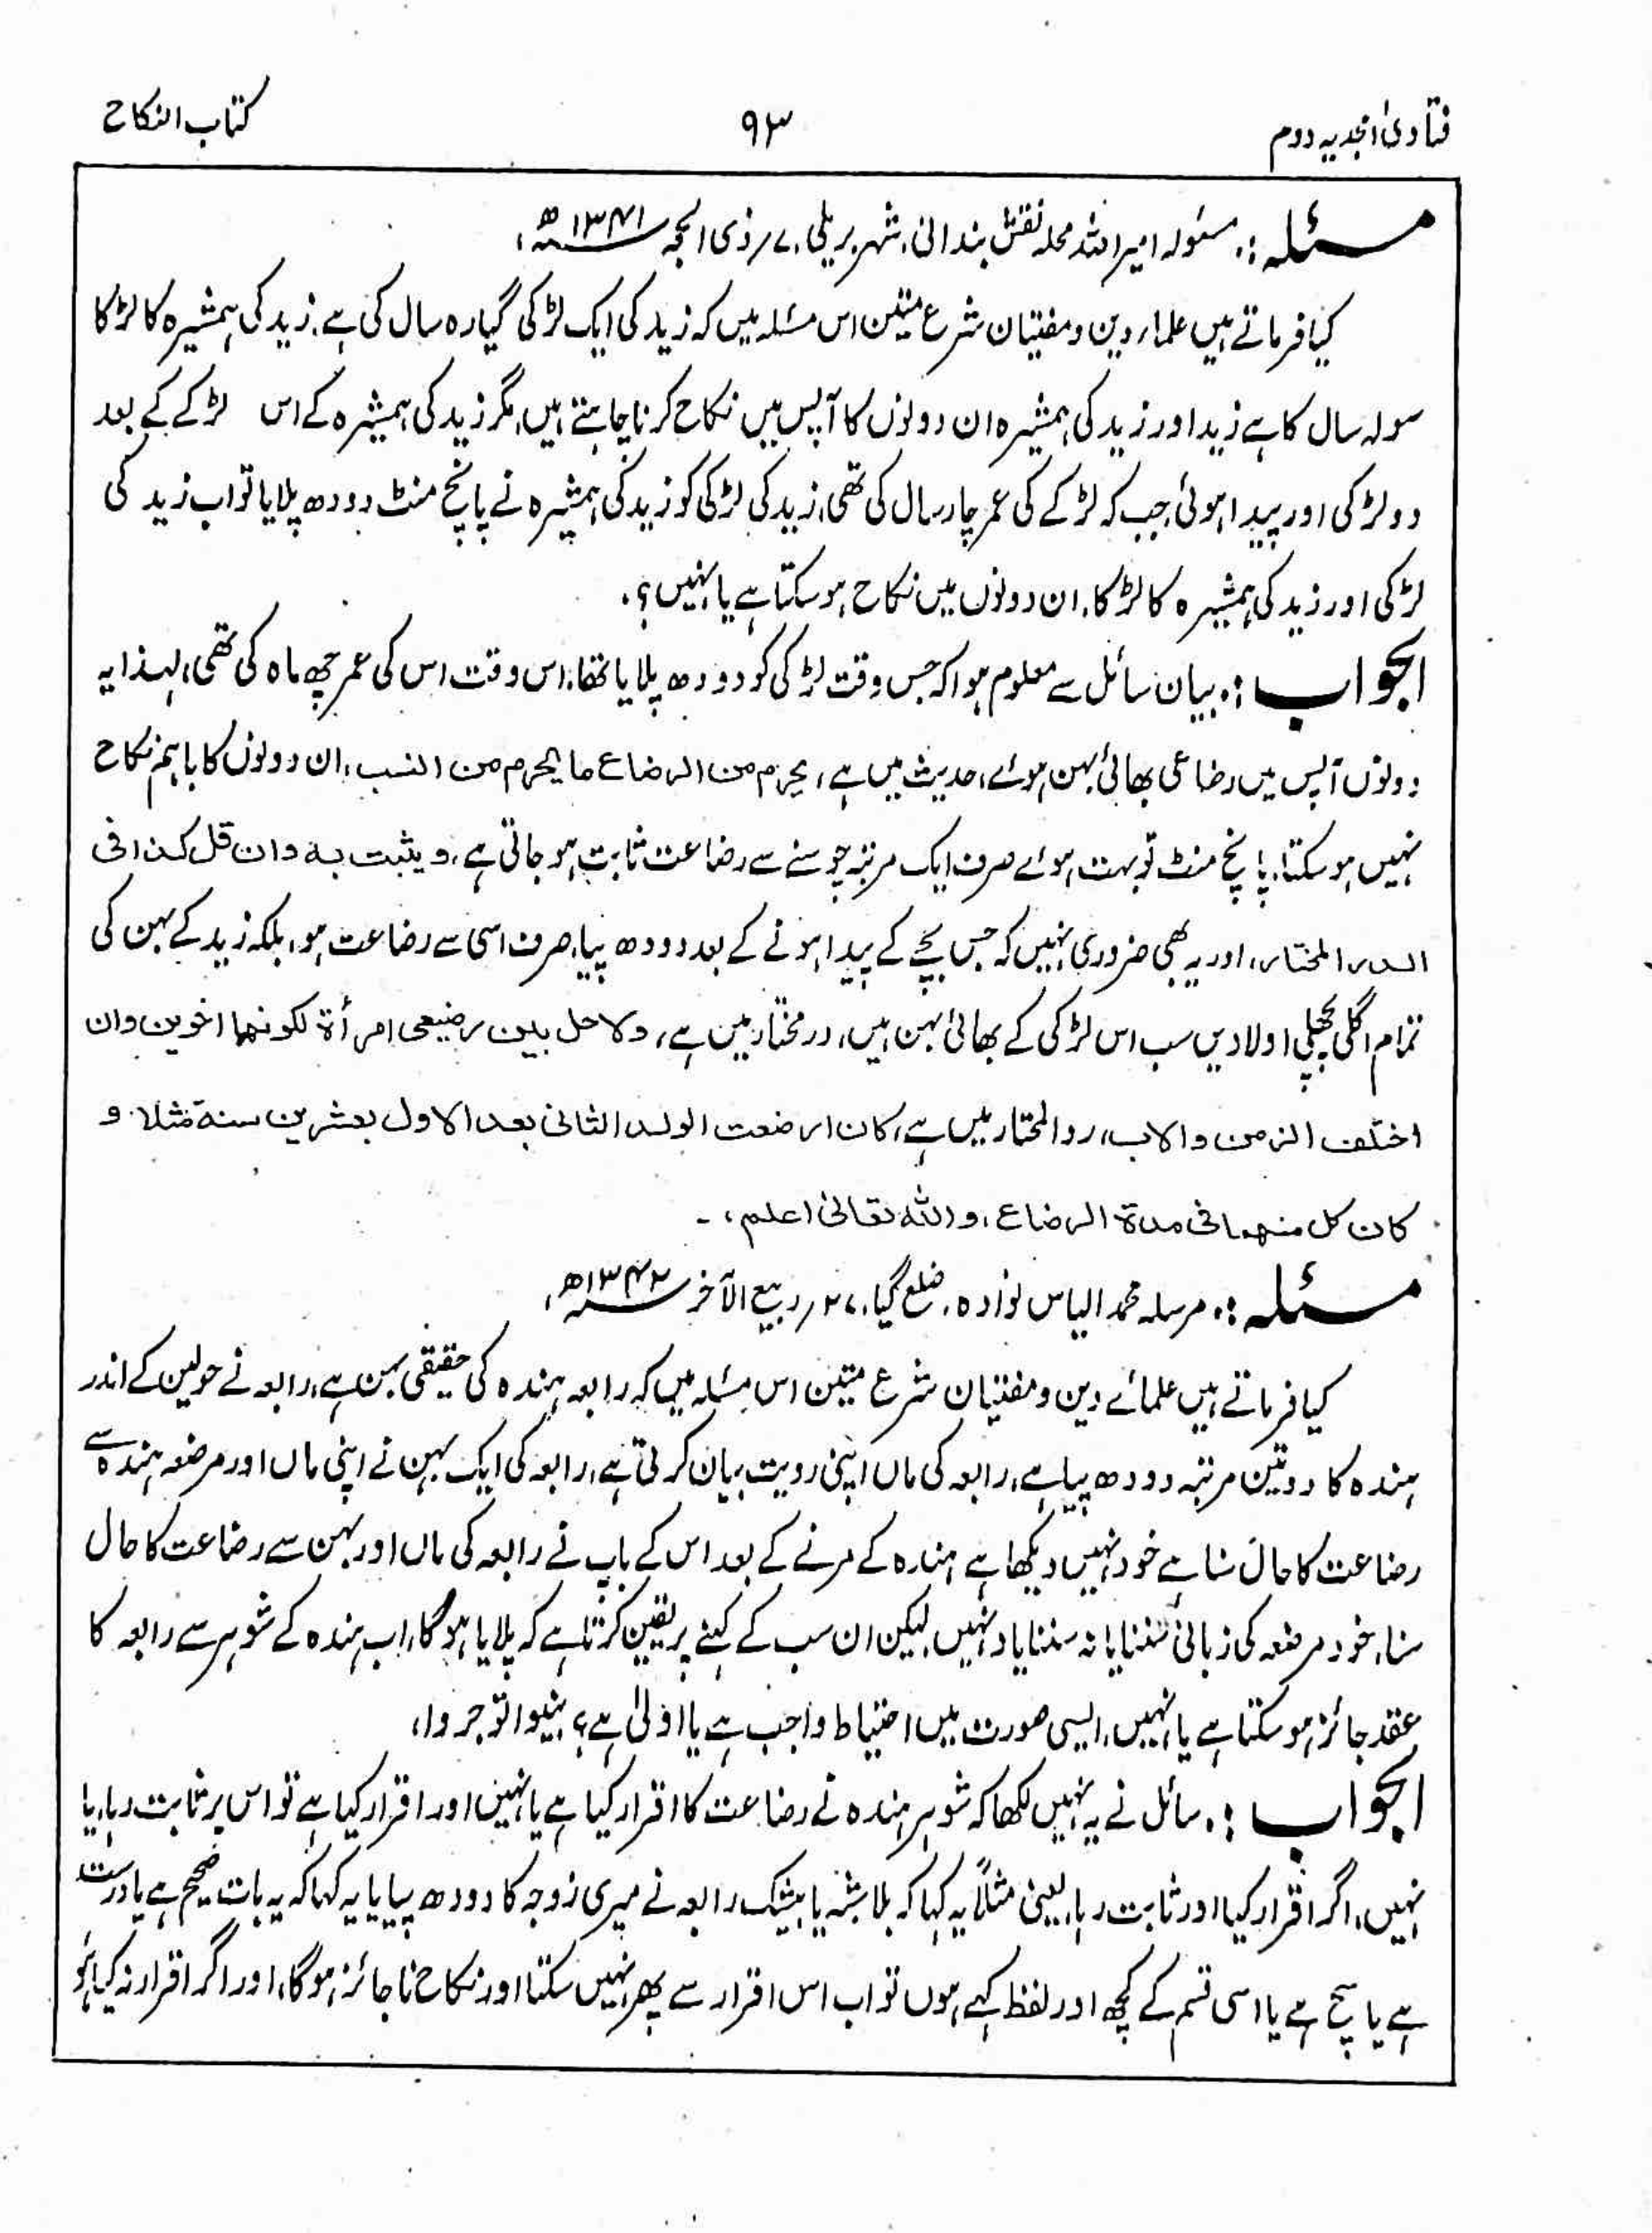 فتاویٰ امجدیہ دوم
۹۳
کتاب النکاح
مسئلہ :۔ مسئولہ امیر اللہ محلہ نقش بندان، شہر بریلی، ۷؍ ذی الحجہ ۱۳۴۱ھ،
کیا فرماتے ہیں علماء دین و مفتیان شرع متین اس مسئلہ میں کہ زید کی ایک لڑکی گیارہ سال کی ہے، زید کی ہمشیرہ کا لڑکا
سولہ سال کا ہے زید اور زید کی ہمشیرہ ان دونوں کا آپس میں نکاح کرنا چاہتے ہیں، مگر زید کی ہمشیرہ کے اس لڑکے کے بعد
دو لڑکی اور پیدا ہوئی، جب کہ لڑکے کی عمر چار سال کی تھی، زید کی لڑکی کو زید کی ہمشیرہ نے پانچ منٹ دودھ پلایا تو اب زید کی
لڑکی اور زید کی ہمشیرہ کا لڑکا، ان دونوں میں نکاح ہو سکتا ہے یا نہیں؟۔
الجواب :۔ بیان سائل سے معلوم ہوا کہ جس وقت لڑکی کو دودھ پلایا تھا، اس وقت اس کی عمر چھ ماہ کی تھی، لہذا یہ
دونوں آپس میں رضاعی بھائی بہن ہوئے، حدیث میں ہے، یحرم من الرضاع ما یحرم من النسب، ان دونوں کا باہم نکاح
نہیں ہو سکتا، پانچ منٹ تو بہت ہوئے صرف ایک مرتبہ چوسنے سے رضاعت ثابت ہو جاتی ہے، ویثبت بہ وان قل کذا فی
الدر المختار، اور یہ بھی ضروری نہیں کہ جس بچے کے پیدا ہونے کے بعد دودھ پیا، صرف اسی سے رضاعت ہو، بلکہ زید کے بہن کی
تمام اگلی پچھلی اولادیں سب اس لڑکی کے بھائی بہن ہیں، در مختار میں ہے، ولا حل بین رضیعی امرأۃ لکونھما اخوین وان
اختلف الزمن والاب، رد المحتار میں ہے، کان ارضعت الولد الثانی بعد الاول بعشرین سنۃ مثلا و
کان کل منھما فی مدۃ الرضاع، واللہ تعالیٰ اعلم، ۔
مسئلہ :۔ مرسلہ محمد الیاس نوادہ، ضلع گیا، ۲۷؍ ربیع الآخر ۱۳۴۲ھ،
کیا فرماتے ہیں علمائے دین و مفتیان شرع متین اس مسئلہ میں کہ رابعہ ہندہ کی حقیقی بہن ہے، رابعہ نے حولین کے اندر
ہندہ کا دو تین مرتبہ دودھ پیا ہے، رابعہ کی ماں اپنی رویت بیان کرتی ہے، رابعہ کی ایک بہن نے اپنی ماں اور مرضعہ ہندہ سے
رضاعت کا حال سنا ہے خود نہیں دیکھا ہے ہندہ کے مرنے کے بعد اس کے باپ نے رابعہ کی ماں اور بہن سے رضاعت کا حال
سنا، خود مرضعہ کی زبانی سننا یا نہ سننا یاد نہیں، لیکن ان سب کے کہنے پر یقین کرتا ہے کہ پلایا ہوگا، اب ہندہ کے شوہر سے رابعہ کا
عقد جائز ہو سکتا ہے یا نہیں، ایسی صورت میں احتیاط واجب ہے یا اولیٰ ہے؟ بینوا توجروا،
الجواب :۔ سائل نے یہ نہیں لکھا کہ شوہر ہندہ نے رضاعت کا اقرار کیا ہے یا نہیں اور اقرار کیا ہے تو اس پر ثابت رہا، یا
نہیں، اگر اقرار کیا اور ثابت رہا، یعنی مثلاً یہ کہا کہ بلا شبہ یا بیشک رابعہ نے میری زوجہ کا دودھ پیا یا یہ کہا کہ یہ بات صحیح ہے یا درست
ہے یا سچ ہے یا اسی قسم کے کچھ اور لفظ کہے ہوں تو اب اس اقرار سے پھر نہیں سکتا اور نکاح ناجائز ہوگا، اور اگر اقرار نہ کیا ہو